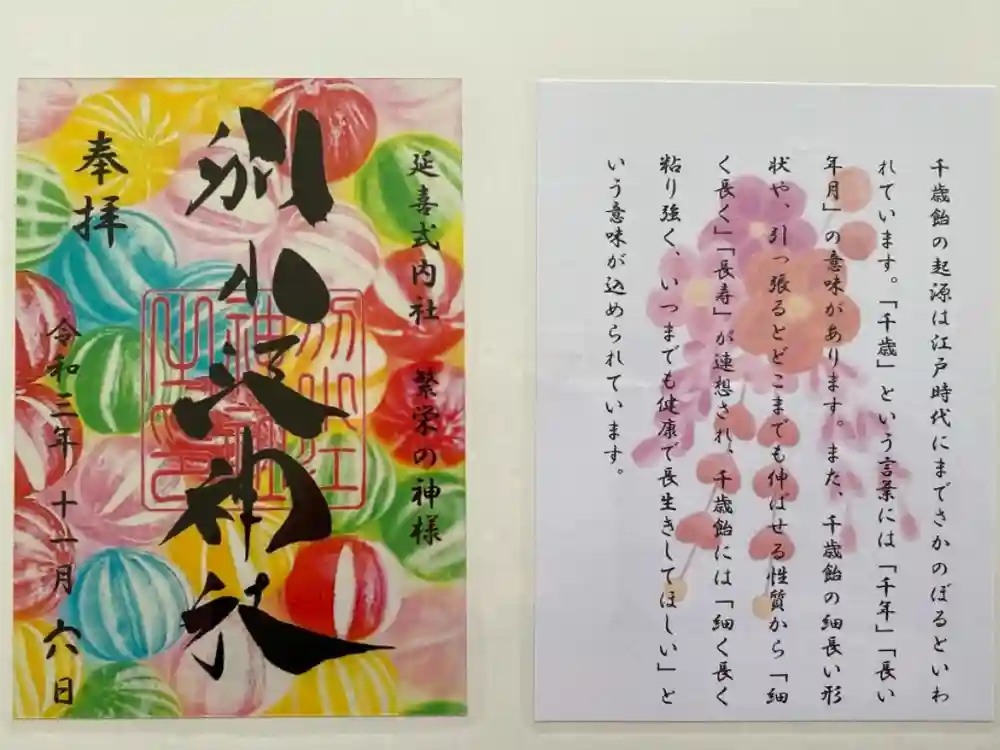 延喜式内社 繁栄の神様
別小江神社
別小江
神社
之印
奉拝
令和三年十一月六日
千歳飴の起源は江戸時代にまでさかのぼるといわ
れています。「千歳」という言葉には「千年」「長い
年月」の意味があります。また、千歳飴の細長い形
状や、引っ張るとどこまでも伸ばせる性質から「細
く長く」「長寿」が連想され、千歳飴には「細く長く
粘り強く、いつまでも健康で長生きしてほしい」と
いう意味が込められています。